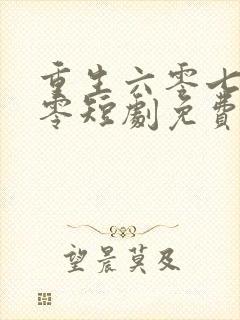 重生六零七
零短劇免費
望晨莫及